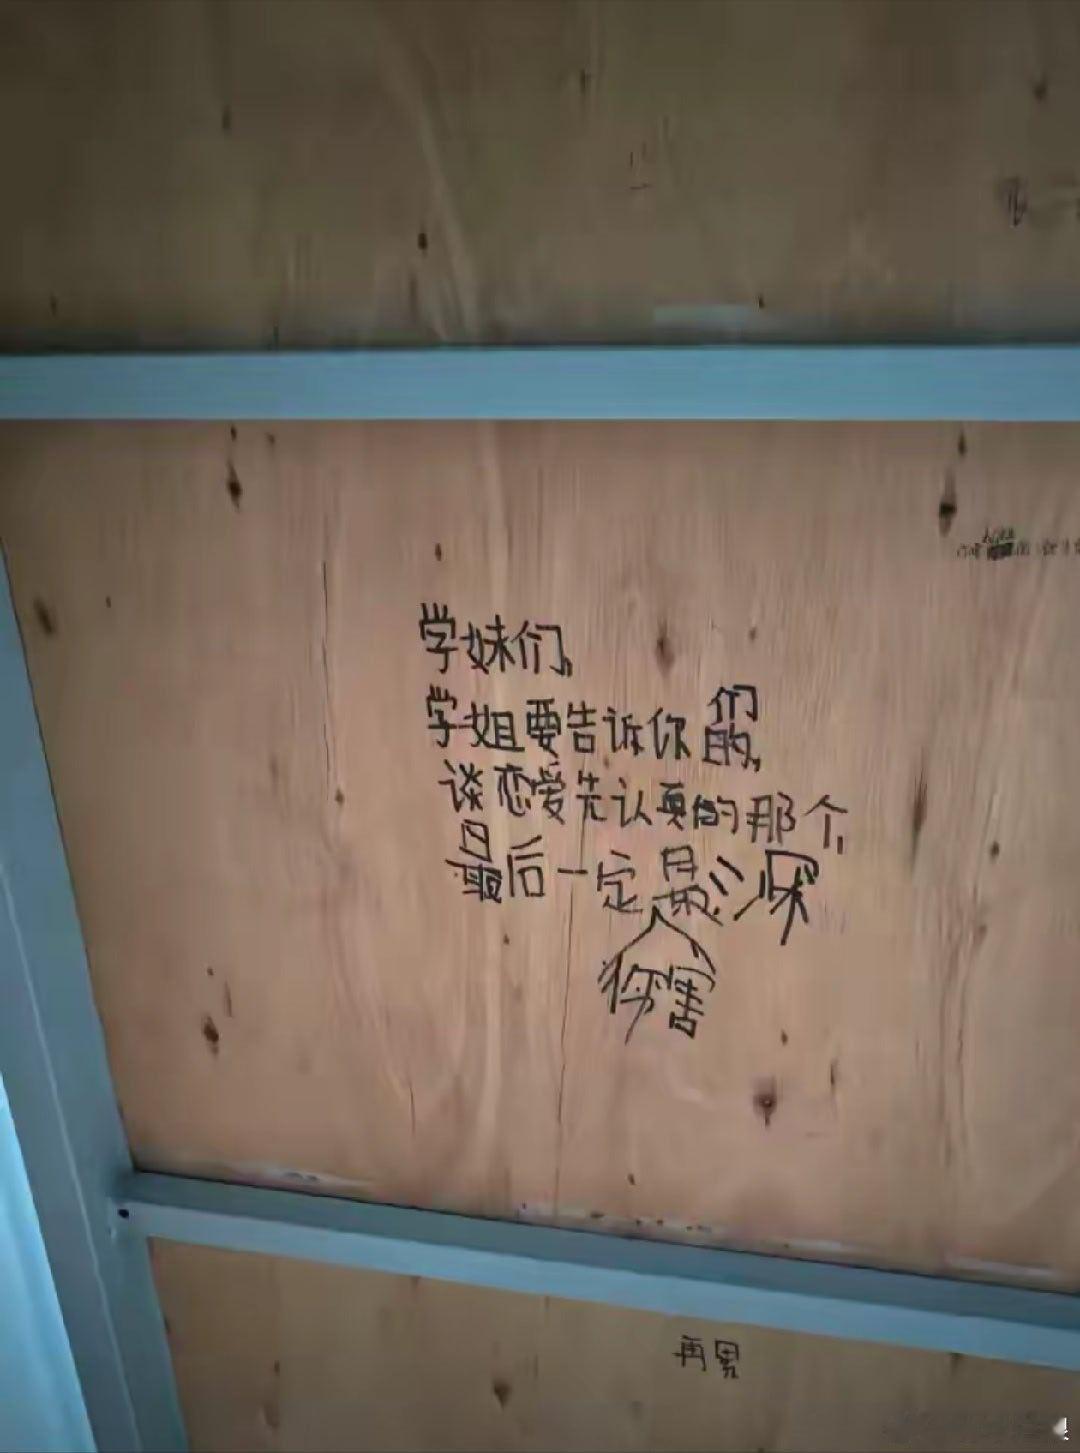 学妹们,
学姐要告诉你们的,
谈恋爱先认真的那个,
最后一定伤害最深
再累